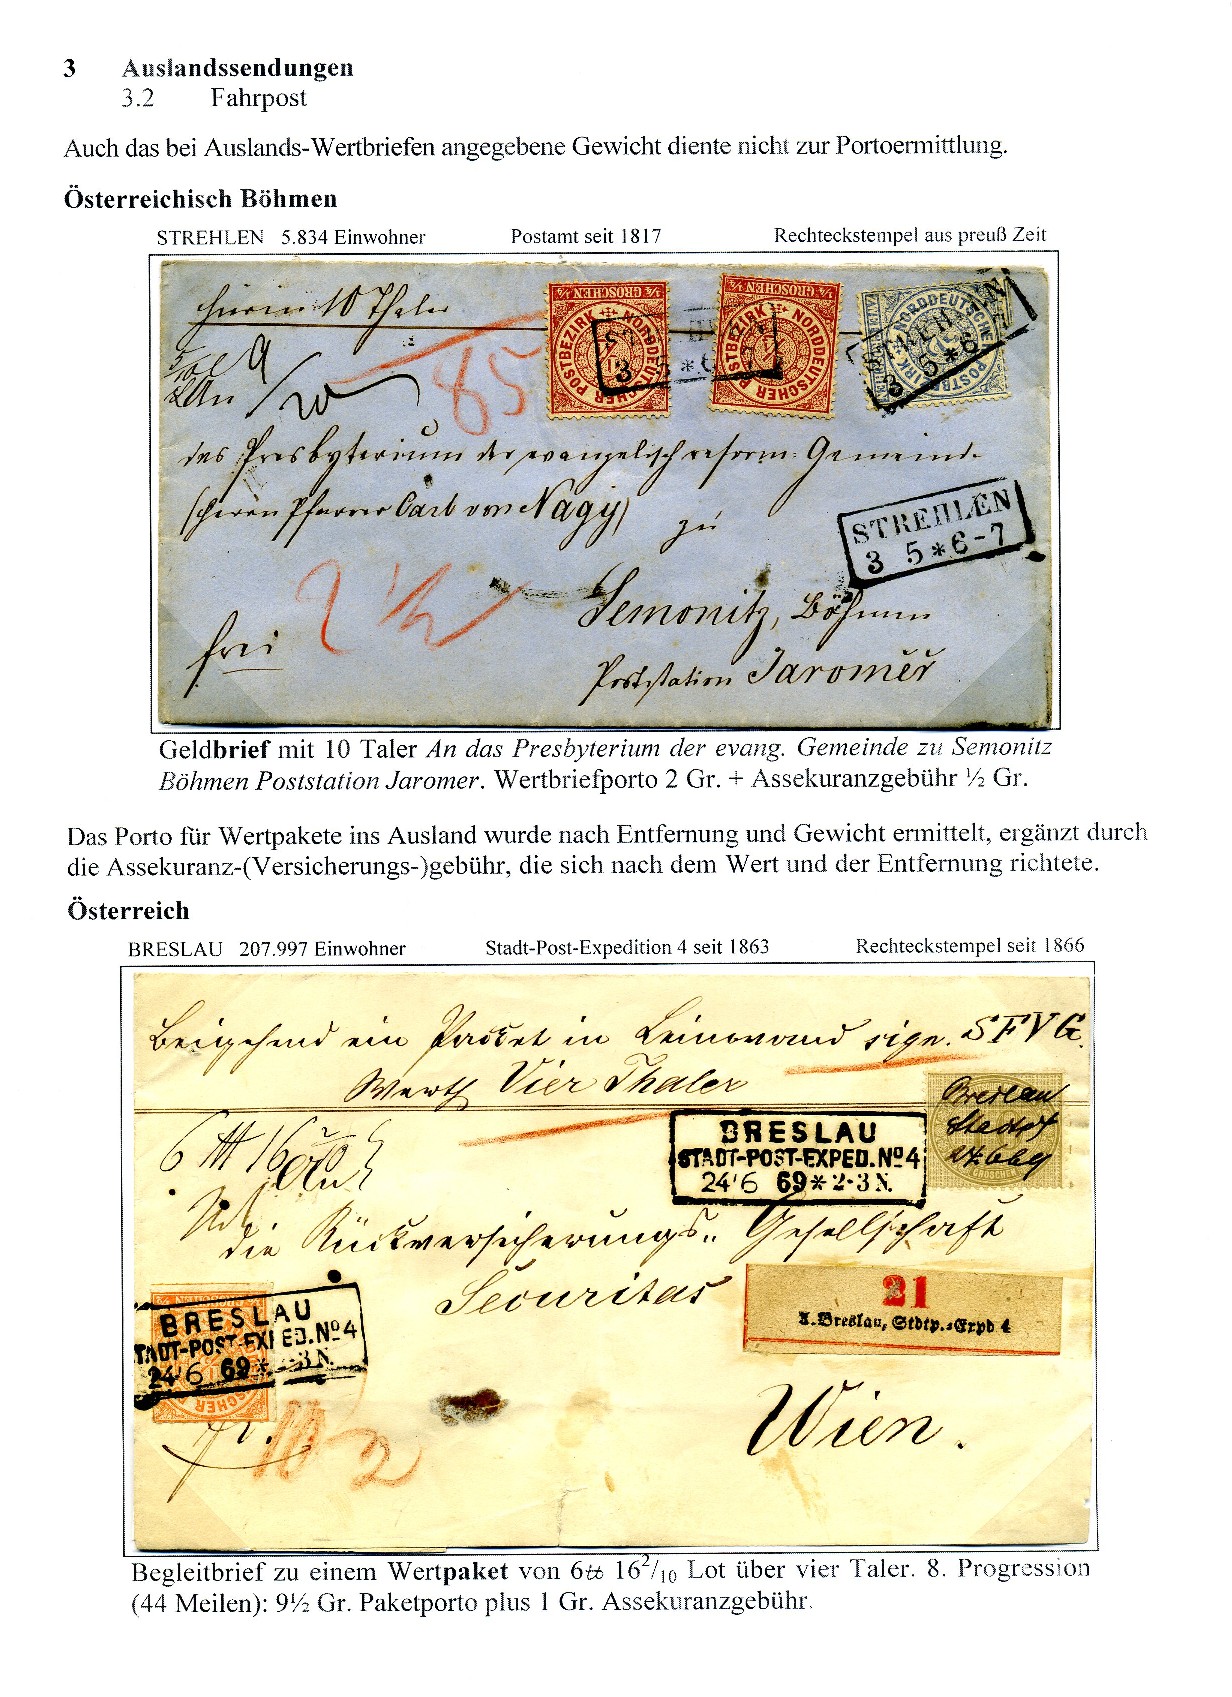 3 Auslandssendungen
3.2 Fahrpost
Auch das bei Auslands-Wertbriefen angegebene Gewicht diente nicht zur Portoermittlung.
Österreichisch Böhmen
STREHLEN 5.834 Einwohner Postamt seit 1817 Rechteckstempel aus preuß Zeit
hierin 10 Thaler
85
des Presbyterium der evangelisch reform. Gemeinde
(Herrn Pfarrer Carl von Nagy) zu
STREHLEN
3 5 * 6-7
2 1/2
Semonitz, Böhmen
frei
Poststation Jaroměř
Geldbrief mit 10 Taler An das Presbyterium der evang. Gemeinde zu Semonitz
Böhmen Poststation Jaromer. Wertbriefporto 2 Gr. + Assekuranzgebühr ½ Gr.
Das Porto für Wertpakete ins Ausland wurde nach Entfernung und Gewicht ermittelt, ergänzt durch
die Assekuranz-(Versicherungs-)gebühr, die sich nach dem Wert und der Entfernung richtete.
Österreich
BRESLAU 207.997 Einwohner Stadt-Post-Expedition 4 seit 1863 Rechteckstempel seit 1866
Beigehend ein Packet in Leinwand sign. SFVG.
Werth Vier Thaler
Breslau
BRESLAU
STADT-POST-EXPED. Nº 4
24 6 69 * 2-3 N.
An
die Rückversicherungs-Gesellschaft
Securitas
21
A. Breslau, Stdtp.-Expd 4
BRESLAU
STADT-POST-EXPED. Nº 4
24 6 69 * 2-3 N.
Wien.
Begleitbrief zu einem Wertpaket von 6℔ 16²/₁₀ Lot über vier Taler. 8. Progression
(44 Meilen): 9½ Gr. Paketporto plus 1 Gr. Assekuranzgebühr.